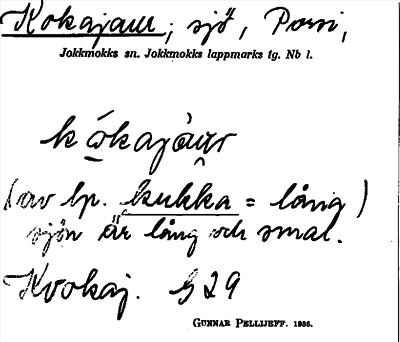 Kokajaur, sjö, Porsi,
Jokkmokks sn. Jokkmokks lappmarks tg. Nb l.
kå̀kajàu̯r
(av lp. kukka = lång)
sjön är lång och smal.
Kvokaj. G 29
GUNNAR PELLIJEFF. 1936.